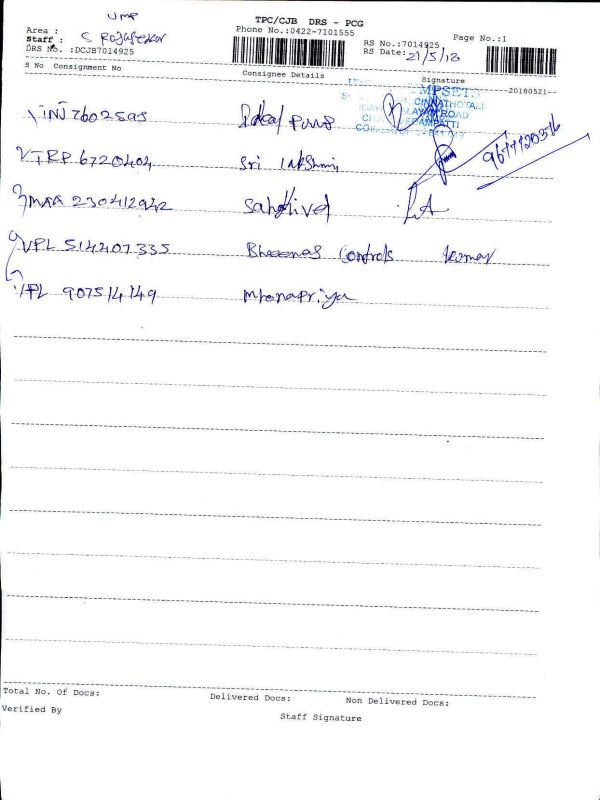 UMP
TPC/CJB DRS - PCG
Area :
Phone No.:0422-7101555
Page No.:1
Staff : S Rajasekar
RS No.:7014925
DRS No. :DCJB7014925
RS Date: 21/5/18
S No Consignment No Consignee Details Signature
--20180521--
MPSETS
CINNATHOTAM
ROAD
1 INJ 7602595
2 TRP 6720404 Sri Lakshmi
9677720276
3 MAA 230412942 Sakthivel
4 VPL 514407335 Bheemas Controls Kumar
VPL 907514149
Total No. Of Docs: Delivered Docs: Non Delivered Docs:
Verified By Staff Signature